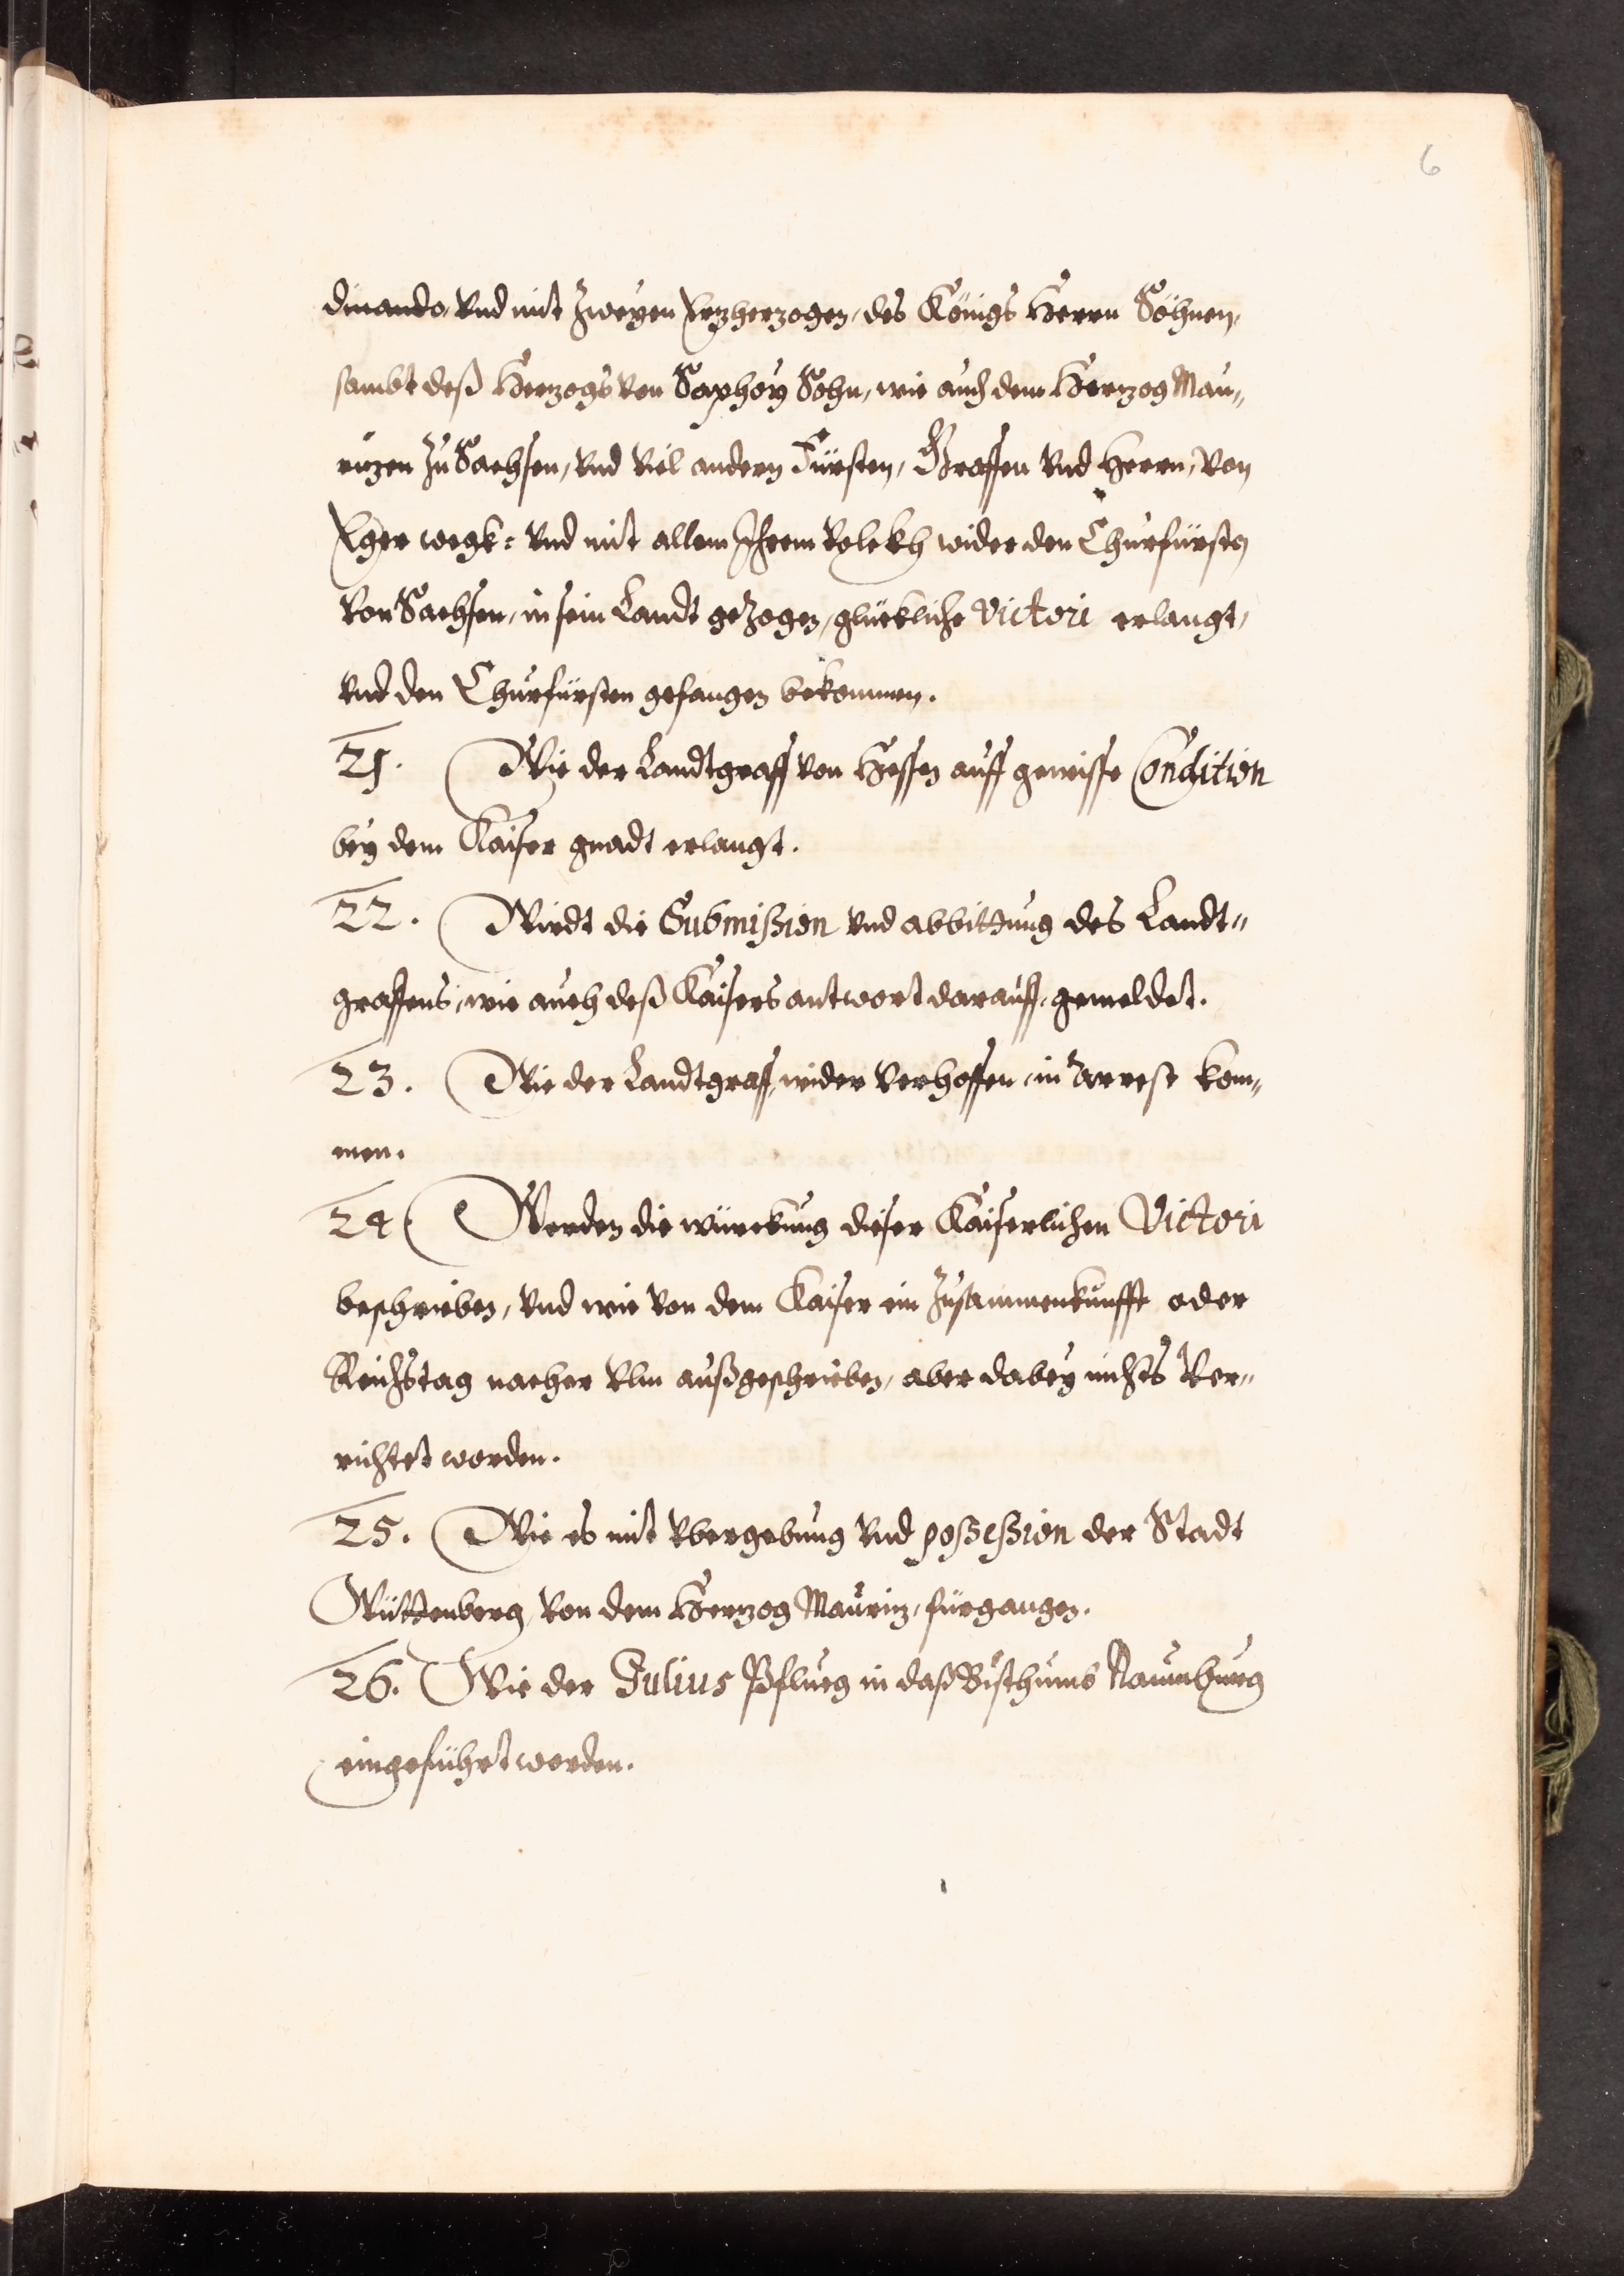 6
dinando, vnd mit zweyen Erzherzogen, des Königs Herrn Söhnen,
sambt deß Herzogs von Saphoy Sohn, wie auch dem Herzog Mau„
rizen zu Sachsen, vnd viel andern Fürsten, Graffen vnd Herrn, von
Eger wegk: vnd mit allem Ihrem volckh wider den Churfürsten
von Sachsen, in sein Landt gezogen, glückliche Victori erlangt,
vnd den Churfürsten gefangen bekommen.
21. Wie der Landtgraff von Hessen auff gewisse Condition
bey dem Kaiser gnadt erlangt.
22. Wirdt die Submißion vnd abbittung des Landt„
graffens, wie auch deß Kaisers antwort darauff, gemeldet.
23. Wie der Landtgraff, wider verhoffen, in Arrest kom„
men.
24. Werden die würckung dieser Kaiserlichen Victori
beschrieben, vnd wie von dem Kaiser ein Zusammenkunfft oder
Reichstag nacher Vlm außgeschrieben, aber dabey nichts Ver„
richtet worden.
25. Wie es mit vbergebung vnd poßeßion der Stadt
Wüttenberg, von dem Herzog Mauriz, fürgangen.
26. Wie der Julius Pflueg in daß Bisthumb Naumburg
eingeführt worden.